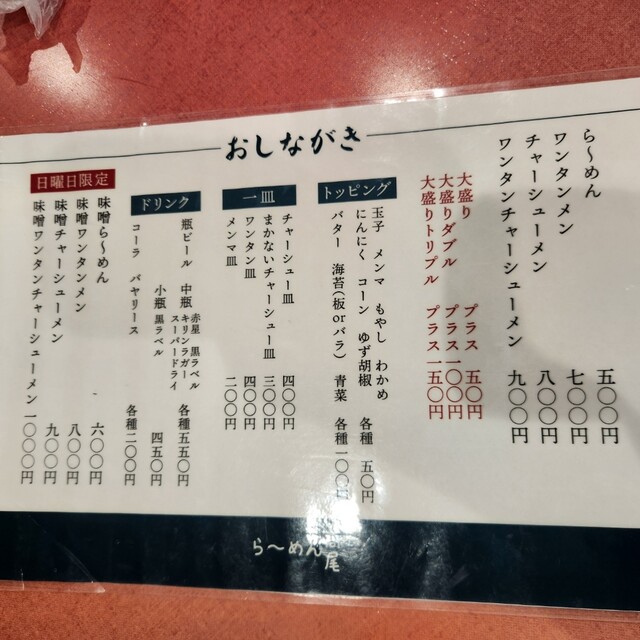 おしながき
ら〜めん 五〇〇円
ワンタンメン 七〇〇円
チャーシューメン 八〇〇円
ワンタンチャーシューメン 九〇〇円
大盛り プラス 五〇円
大盛りダブル プラス一〇〇円
大盛りトリプル プラス一五〇円
トッピング
玉子 メンマ もやし わかめ
にんにく コーン ゆず胡椒 各種 五〇円
バター 海苔(板orバラ) 青菜 各種一〇〇円
一皿
チャーシュー皿 四〇〇円
まかないチャーシュー皿 三〇〇円
ワンタン皿 四〇〇円
メンマ皿 二〇〇円
ドリンク
瓶ビール 中瓶 赤星 黒ラベル
キリンラガー
スーパードライ 各種五五〇円
小瓶 黒ラベル 四五〇円
コーラ バヤリース 各種二〇〇円
日曜日限定
味噌ら〜めん 六〇〇円
味噌ワンタンメン 八〇〇円
味噌チャーシューメン 九〇〇円
味噌ワンタンチャーシューメン 一〇〇〇円
ら〜めん
尾